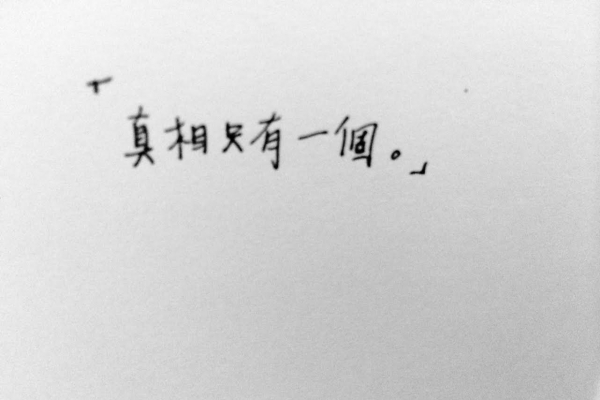 「真相只有一個。」